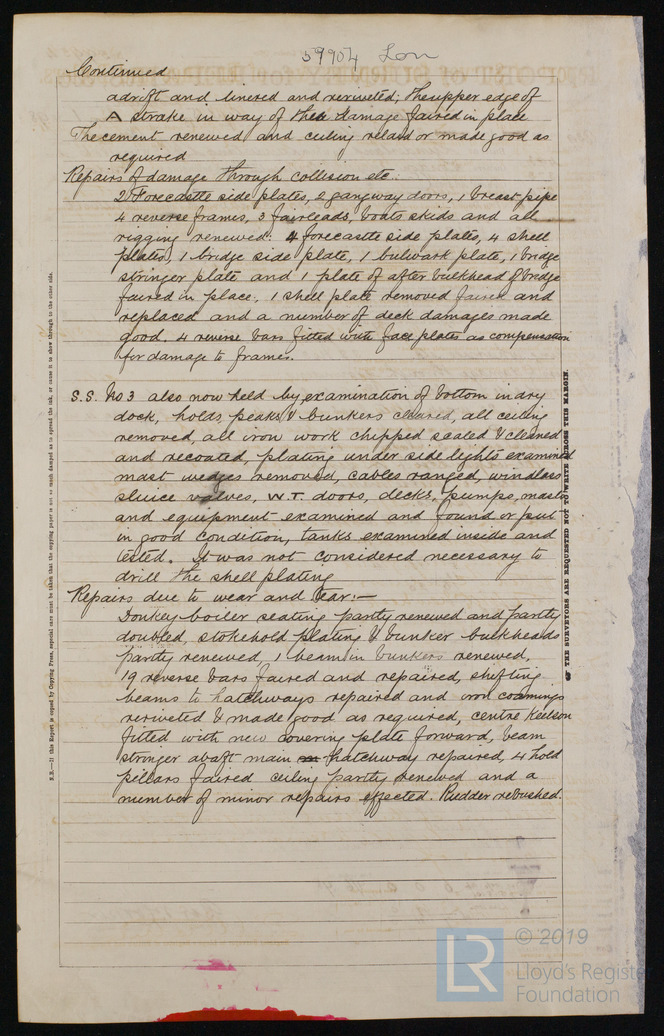 59904 Lon
Continued
adrift and linered and reriveted; the upper edge of
A strake in way of the damage faired in place
The cement renewed and ceiling relaid or made good as
required
Repairs of damage through collision etc.
2 Forecastle side plates, 2 gangway doors, 1 breast pipe
4 reverse frames, 3 fairleads, boats skids and all
rigging renewed: 4 forecastle side plates, 4 shell
plates, 1 bridge side plate, 1 bulwark plate, 1 bridge
stringer plate and 1 plate of after bulkhead of bridge
faired in place, 1 shell plate removed faired and
replaced and a number of deck damages made
good. 4 reverse bars fitted with face plates as compensation
for damage to frames.
S.S. No 3 also now held by examination of bottom in dry
dock, holds, peaks & bunkers cleared, all ceiling
removed, all iron work chipped scaled & cleaned
and recoated, plating under side lights examined
mast wedges removed, cables ranged, windlass
sluice valves, W.T. doors, decks, pumps, masts
and equipment examined and found or put
in good condition, tanks examined inside and
tested. It was not considered necessary to
drill the shell plating
Repairs due to wear and tear:—
Donkey boiler seating partly renewed and partly
doubled, stokehold plating & bunker bulkheads
partly renewed, 1 beam in bunkers renewed,
19 reverse bars faired and repaired, shifting
beams to hatchways repaired and iron coamings
reriveted & made good as required, centre Keelson
fitted with new covering plate forward, beam
stringer abaft main hatchway repaired, 4 hold
pillars faired ceiling partly renewed and a
number of minor repairs effected. Rudder rebushed.
N.B.—If this Report is copied by Copying Press, especial care must be taken that the copying paper is not so much damped as to spread the ink, or cause it to show through to the other side.
THE SURVEYORS ARE REQUESTED NOT TO WRITE ACROSS THIS MARGIN.
LR
© 2019
Lloyd's Register
Foundation